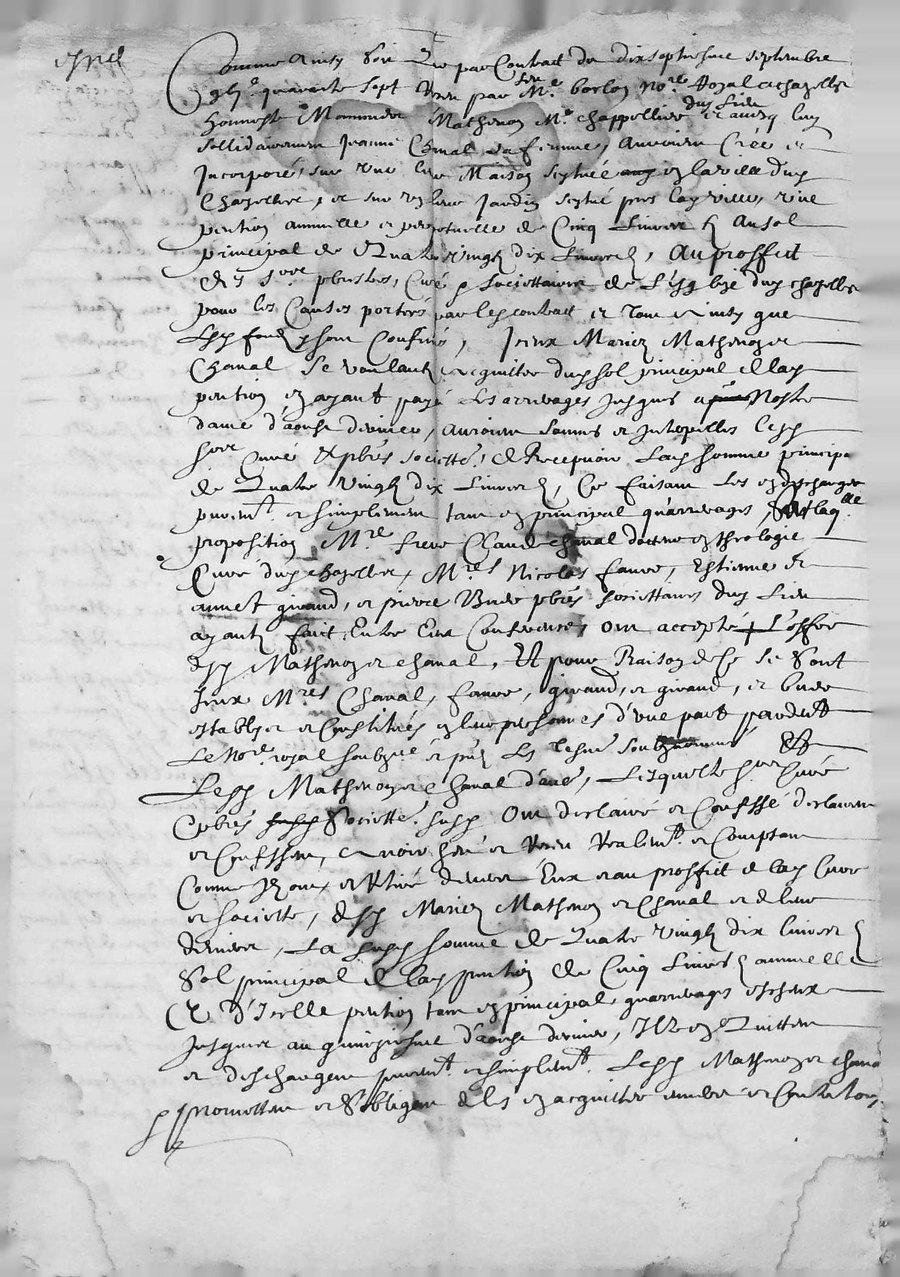 Comme ainsy soit que par Contract du dixseptiesme septembre
quarante sept Receu par feu Me borlon no.re Royal a chazelle
honneste Mathenon Me chappellier dud lieu et avecq luy
sollidairement Jeanne Chanal sa femme, auroient Creé et
Incorporé, sur une leur Maison scytuée en la ville dud
Chazelles, et sur un leur Jardin scytué pres lad ville, une
pention annuelle et perpetuelle de Cinq Livres au sol
principal de Quatre vingtz dix Livres, Au proffict
des Srs pbres, Curé et Societtaires de L'esglize dud chazelles
pour les Causes portées par led contract et tout ainsy que
lesd fondz sont Confinés, Iceux Mariez Mathenon et
Chanal se voullantz acquitter dud sol principal de lad
pention en ayant payé les arrerages Jusques a Nostre
dame d'aoust dernier, auroient sommé et Interpellés lesd
Srs Curé pbres societté, de Recepvoir lad somme principa
de Quatre vingtz dix Livres, Ce faisant les en descharger
purem.t et simplement tant en principal qu'arrerages, Sur laq.lle
proposition M.re frere Claude chanal docteur en theologie
Curé dud chazelles, M.res Nicolas faure, Estienne et
annet giraud, et pierre Bude pbres societtaires dud Lieu
ayantz fait Entre Eux Conferences, ont accepté + L'offre
desd Mathenon et chanal, Et pour Raison de Ce se sont
Iceux M.res Chanal, faure, giraud, et giraud, et bude
establys et Constitués en leurs personnes d'une part pardevt
Le No.re royal soubzné et pnts Les tesms soubznommés Et
Lesd Mathenon et chanal d'autre, Lesquels Srs Curé
pbres Societté susd Ont desclairé et Confessé desclairent
et Confessent, avoir heu et Receu Reallem.t et Comptant
Comme Ilz ont et Retiré devers Eux et au proffict de lad Cure
et societté, desd Mariez Mathenon et Chanal et de leurs
deniers, La susd somme de Quatre vingtz dix livres
Sol principal de lad pention de Cinq Livres annuelle
Et d'Icelle pention tant en principal qu'arrerages escheux
Jusques au quinziesme d'aoust dernier, Ilz en Quittent
et deschargent purem.t et simplem.t Lesd Mathenon et chana
promettent et s'obligent de les en acquitter envers et Contre tous,